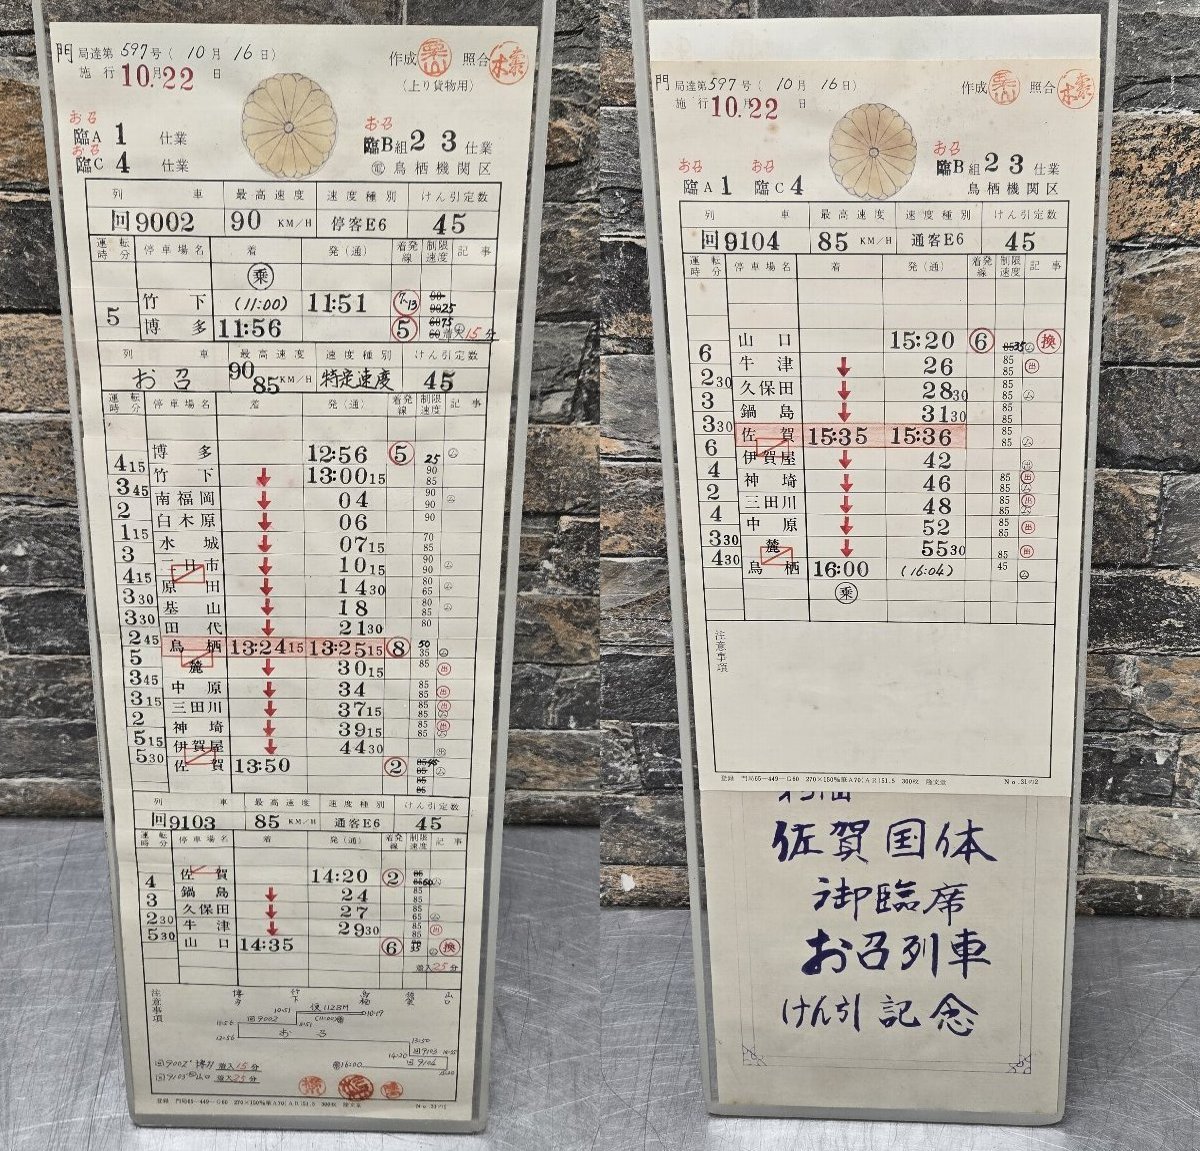 門局達第597号(10月16日)
施行10月22日
作成 照合
(上り貨物用)
お召
臨A 1 仕業
お召
臨C 4 仕業
お召
臨B組 2 3 仕業
鳥栖機関区
列車 最高速度 速度種別 けん引定数
回9002 90 KM/H 停客E6 45
運転時分 停車場名 着 発(通) 着発線 制限速度 記事
乗
竹下 (11:00) 11:51 7-13
5
博多 11:56 5
列車 最高速度 速度種別 けん引定数
お召 90 85 KM/H 特定速度 45
運転時分 停車場名 着 発(通) 着発線 制限速度 記事
博多 12:56 5
415 竹下 ↓ 13:0015 25 90 85
345 南福岡 ↓ 04 90
2 白木原 ↓ 06 90
115 水城 ↓ 0715 70 85
3 二日市 ↓ 1015 90 90
415 原田 ↓ 1430 80 60
330 基山 ↓ 18 80 85
330 田代 ↓ 2130 80
245 鳥栖 13:2415 13:2515 8 50 35
5 麓 ↓ 3015 85
345 中原 ↓ 34 85 85 出
315 三田川 ↓ 3715 85 85 出
2 神埼 ↓ 3915 85 85 出
515 伊賀屋 ↓ 4430 出
530 佐賀 13:50 2
列車 最高速度 速度種別 けん引定数
回9103 85 KM/H 通客E6 45
運転時分 停車場名 着 発(通) 着発線 制限速度 記事
佐賀 14:20 2
4 鍋島 ↓ 24 85 85
3 久保田 ↓ 27 85 65
230 牛津 ↓ 2930 85 85 出
530 山口 14:35 6 換
着入25分
注意事項
博多 竹下 鳥栖 佐賀 山口
10:51 便1128M 10:19
回9002 (11:00)
11:56 11:51
12:56 お召 13:50
14:20 回9103
回9104
16:00
回9002 博多 着入15分
回9103 山口 着入25分
登録 門局65-449-G60 270×150%筆A70(AR)51.5 300枚 隆文堂 No.31の1
門局達第597号(10月16日)
施行10月22日
作成 照合
お召 お召
臨A 1 臨C 4
お召
臨B組 2 3 仕業
鳥栖機関区
列車 最高速度 速度種別 けん引定数
回9104 85 KM/H 通客E6 45
運転時分 停車場名 着 発(通) 着発線 制限速度 記事
山口 15:20 6 換
6 牛津 ↓ 26 85 85 出
230 久保田 ↓ 2830 85 85
3 鍋島 ↓ 3130 85 85
330 佐賀 15:35 15:36 85 85
6 伊賀屋 ↓ 42 出
4 神埼 ↓ 46 85 85 出
2 三田川 ↓ 48 85 85 出
4 中原 ↓ 52 85 85 出
330 麓 ↓ 5530 85 出
430 鳥栖 16:00 (16:04) 45
乗
注意事項
登録 門局65-449-G60 270×150%筆A70(AR)51.5 300枚 隆文堂 No.31の2
佐賀国体
御臨席
お召列車
けん引記念